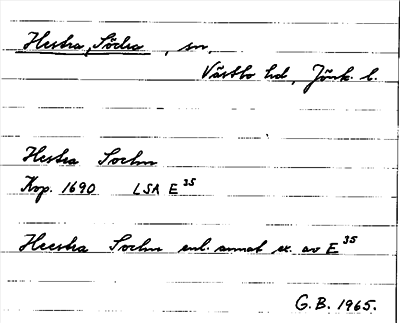 Hestra, Södra, sn,
Västbo hd, Jönk. l.
Hestra Sochn
Kop. 1690 LSA E³⁵
Heestra Sochn enl. annat ex. av E³⁵
G.B. 1965.